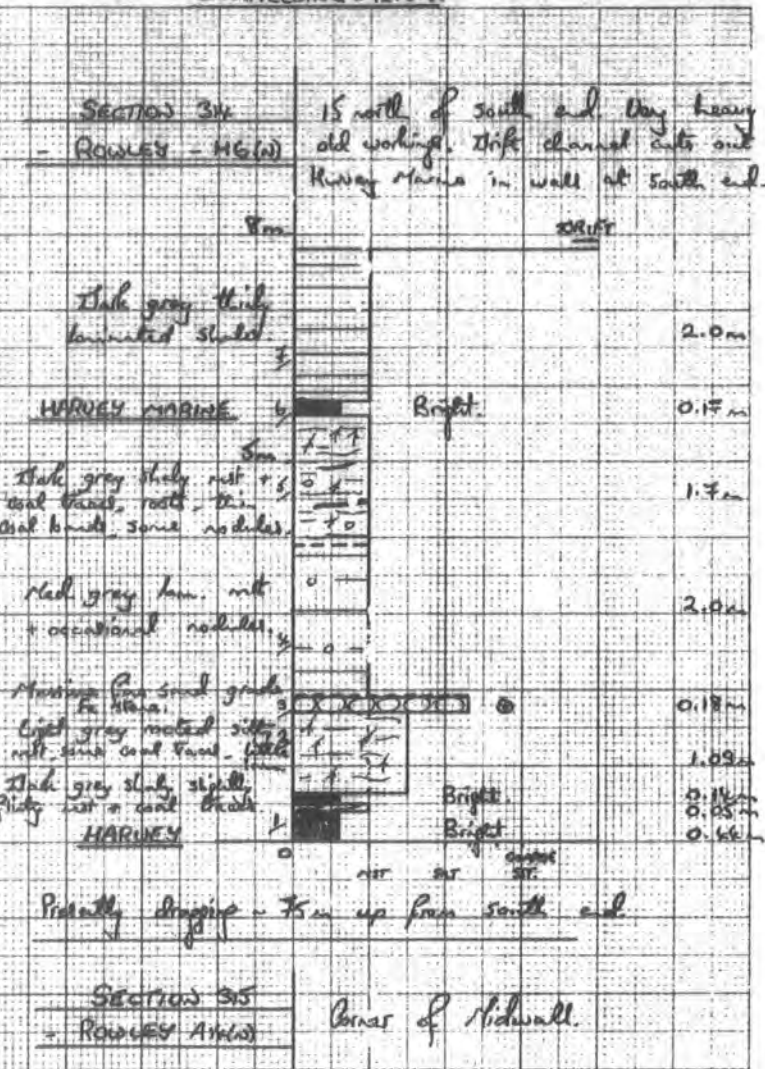 SECTION 314
- ROWLEY - H6(N)
15 north of south end. Very heavy
old workings. Drift channel cuts out
Harvey Marine in wall at south end.
8m
DRIFT
Dark grey thinly
laminated shales.
7
2.0m
HARVEY MARINE
6
Bright.
0.17m
5m
Dark grey shaly mst +
coal traces, roots, thin
coal bands, some nodules.
5
1.7m
Med grey lam. mst
+ occasional nodules.
4
2.0m
Massive fine sand grade
Fe stone.
3
0.18m
Light grey rooted silty
mst, some coal traces,
2
1.09m
Dark grey shaly slightly
mst + coal traces.
Bright.
0.14m
0.05m
HARVEY
1
Bright
0.44m
0
MST
SLT
COARSE
SLT.
Presently dragging ~ 75m up from south end.
SECTION 315
- ROWLEY A14(N)
Corner of Midwall.